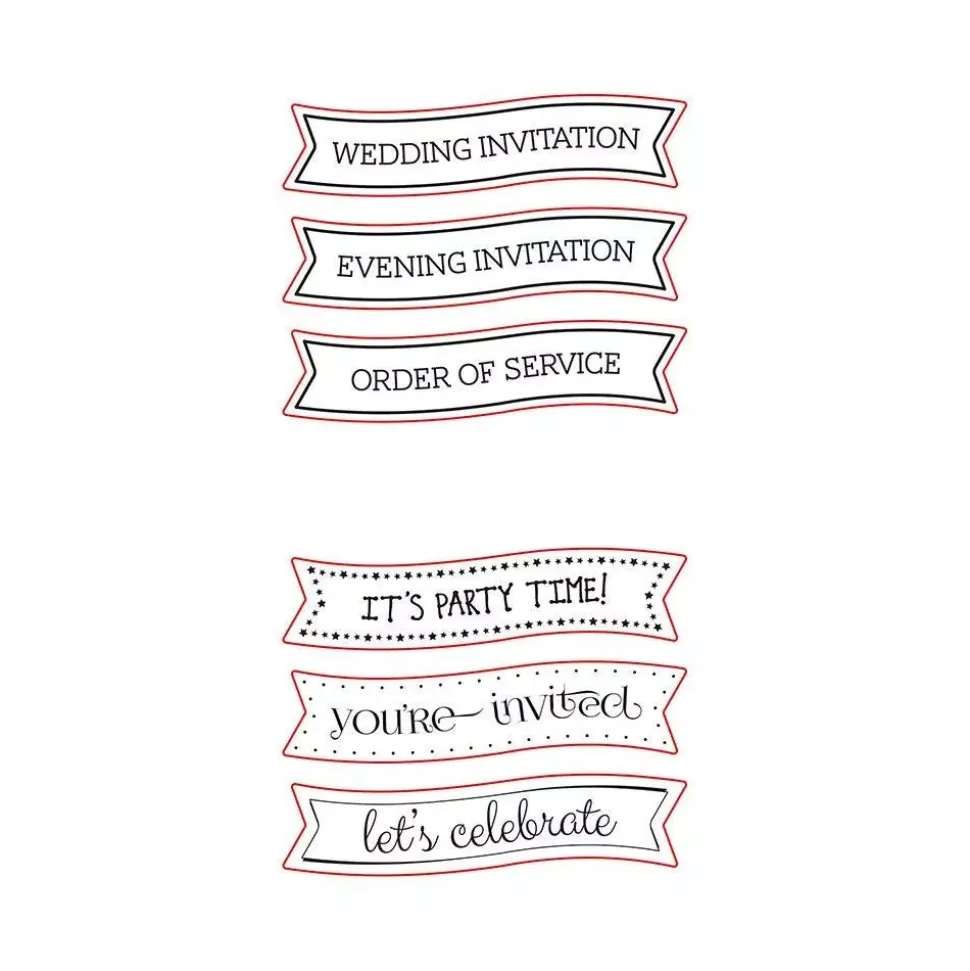 WEDDING INVITATION
EVENING INVITATION
ORDER OF SERVICE
IT'S PARTY TIME!
you're invited
let's celebrate